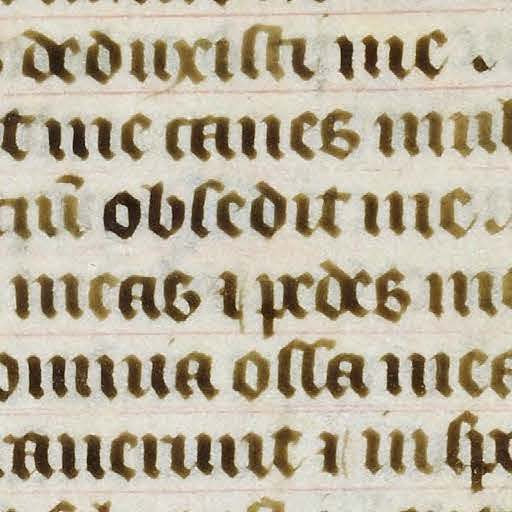 deduxiſti me .
t me canes mul
tiū obſedit me .
meas ⁊ pedes me
omnia oſſa mea
rauerunt ⁊ inſpe